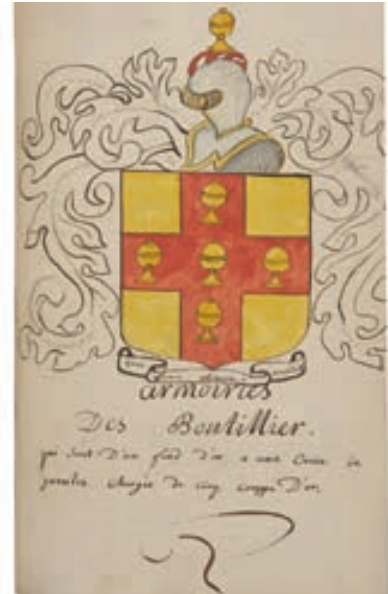 armoiries
Des Boutillier.
qui sont D'un fond D'or a une Croix de
gueulles chargée de cinq couppe D'or.